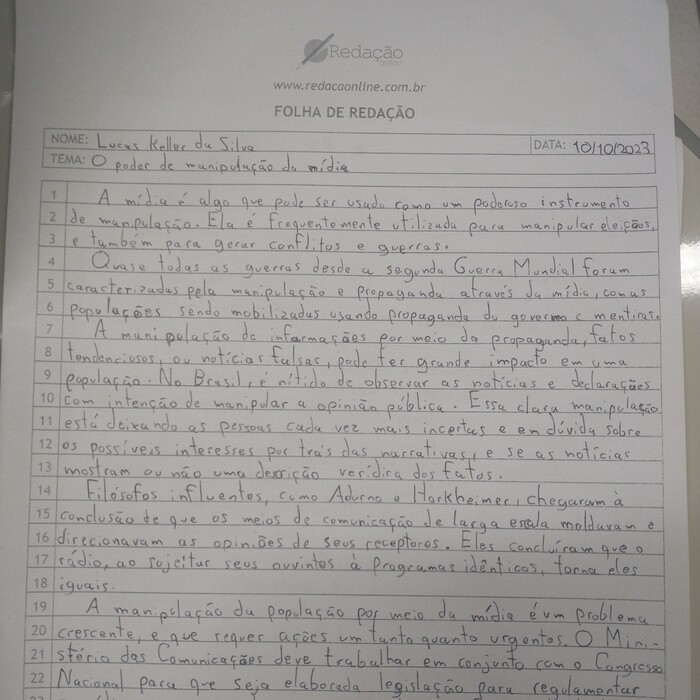 Redação
online
www.redacaonline.com.br
FOLHA DE REDAÇÃO
NOME: Lucas Keller da Silva DATA: 10/10/2023
TEMA: O poder de manipulação da mídia
1 A mídia é algo que pode ser usado como um poderoso instrumento
2 de manpulação. Ela é frequentemente utilizada para manipular eleições,
3 e também para gerar conflitos e guerras.
4 Quase todas as guerras desde a segunda Guerra Mundial foram
5 caracterizadas pela manipulação e propaganda através da mídia, com as
6 populações sendo mobilizadas usando propaganda do governo e mentiras.
7 A manipulação de informações por meio da propaganda, fatos
8 tendenciosos, ou notícias falsas, pode ter grande impacto em uma
9 população. No Brasil, é nítido de observar as notícias e declarações
10 com intenção de manipular a opinião pública. Essa clara manipulação
11 está deixando as pessoas cada vez mais incertas e em dúvida sobre
12 os possíveis interesses por trás das narrativas, e se as notícias
13 mostram ou não uma descrição verídica dos fatos.
14 Filósofos influentes, como Adorno e Horkheimer, chegaram à
15 conclusão de que os meios de comunicação de larga escala moldavam e
16 direcionavam as opiniões de seus receptores. Eles concluíram que o
17 rádio, ao sujeitar seus ouvintes à programas idênticos, torna eles
18 iguais.
19 A manipulação da população por meio da mídia é um problema
20 crescente, e que requer ações um tanto quanto urgentes. O Mini-
21 stério das Comunicações deve trabalhar em conjunto com o Congresso
22 Nacional para que seja elaborada legislação para regulamentar